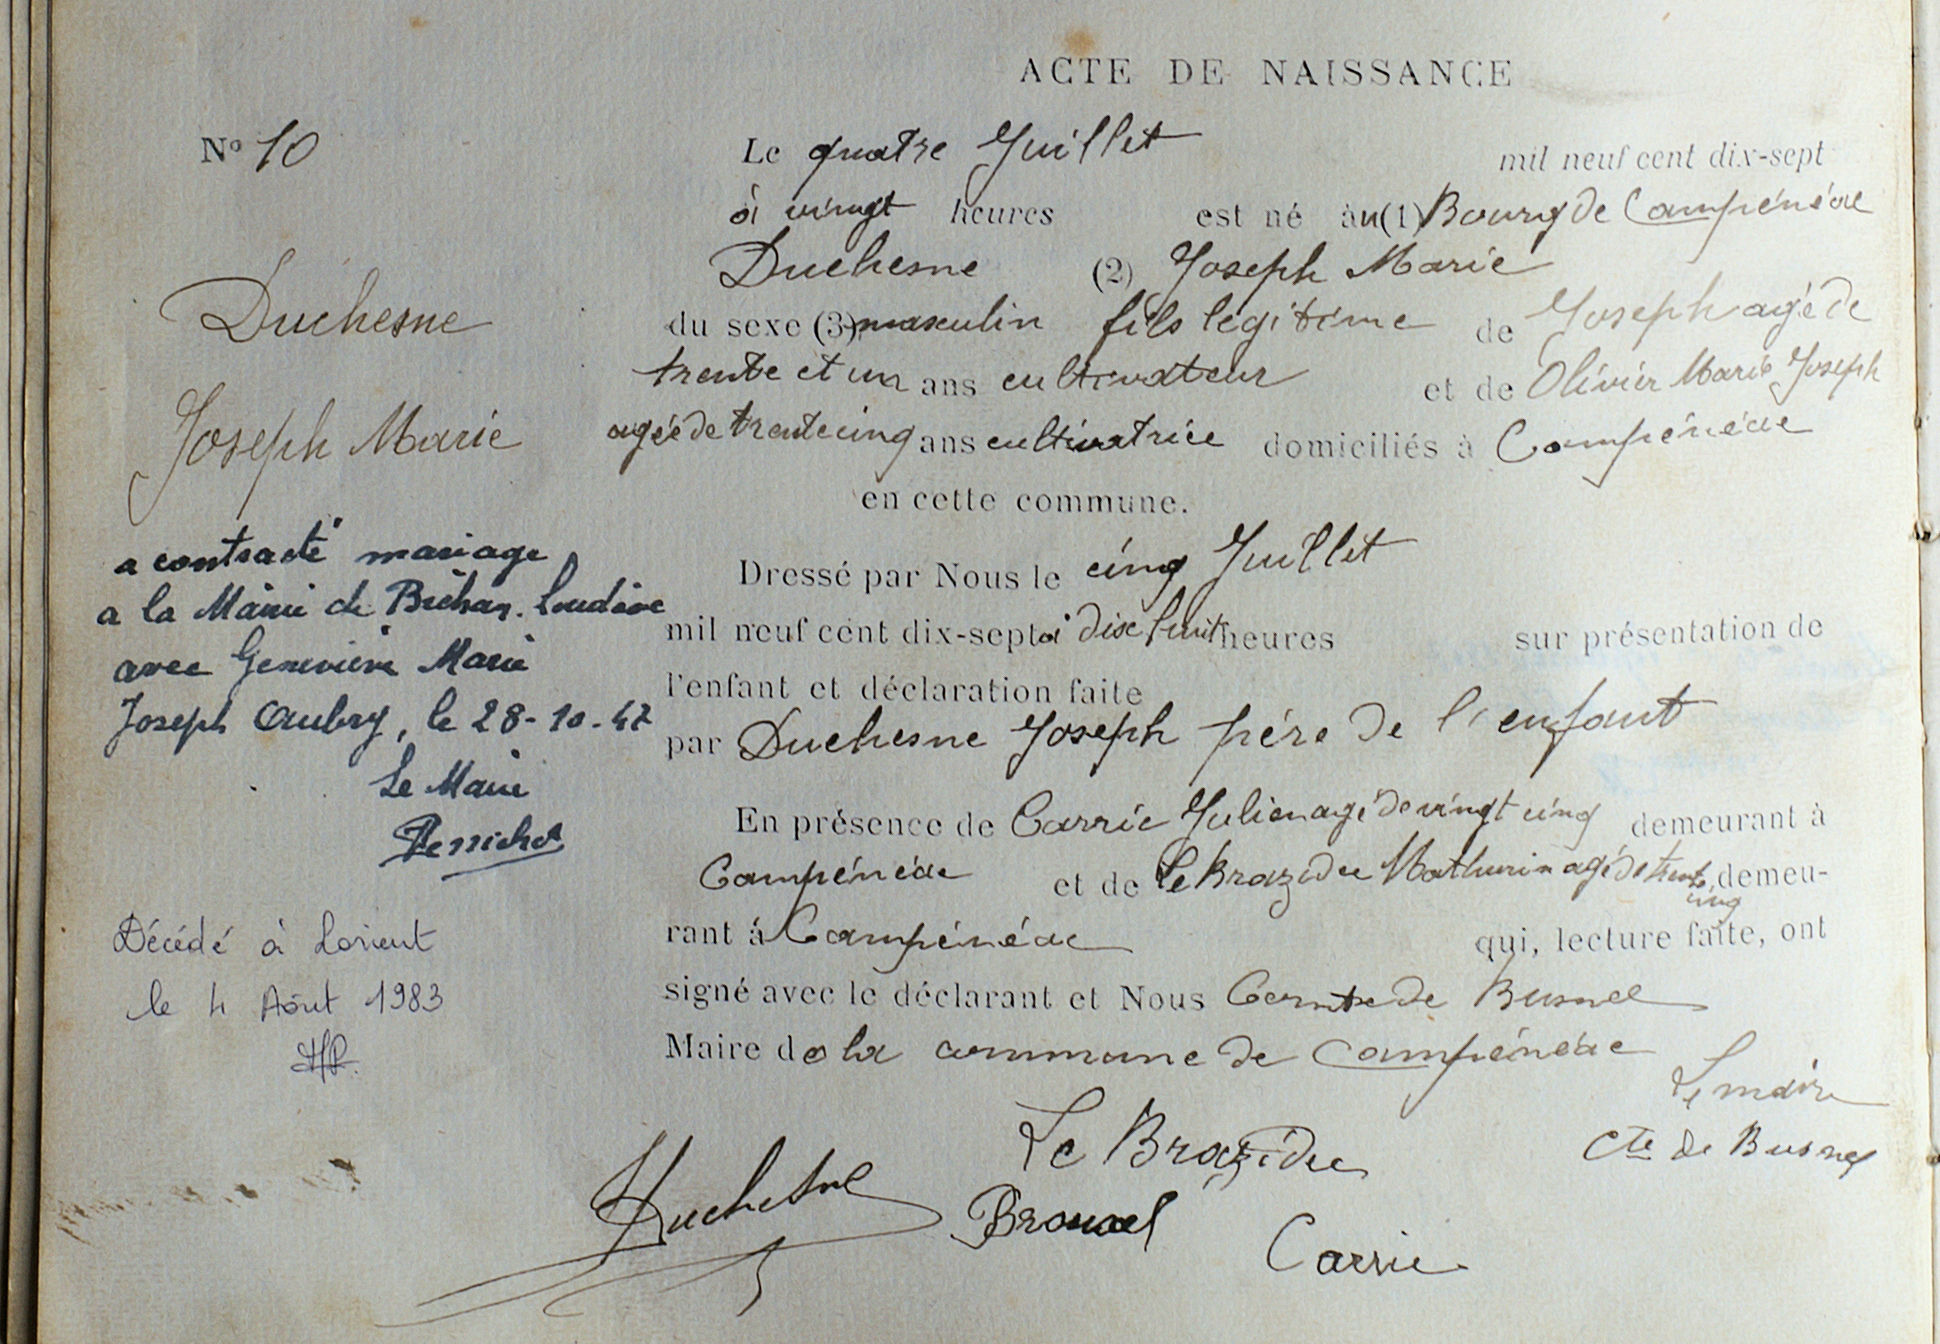 ACTE DE NAISSANCE
N° 10
Duchesne
Joseph Marie
a contracté mariage
a la Mairie de Bréhan-Loudéac
avec Geneviève Marie
Joseph Aubry, le 28-10-47
Le Maire
Perrichot
Décédé à Lorient
le 4 Août 1983
Le quatre Juillet mil neuf cent dix-sept
à vingt heures est né àu (1) Bourg de Campénéac
Duchesne (2) Joseph Marie
du sexe (3) masculin fils légitime de Joseph agé de
trente et un ans cultivateur et de Olivier Marie Joseph
agée de trente cinq ans cultivatrice domiciliés à Campénéac
en cette commune.
Dressé par Nous le cinq Juillet
mil neuf cent dix-sept à dix huit heures sur présentation de
l'enfant et déclaration faite
par Duchesne Joseph père de l'enfant
En présence de Carrie Julien agé de vingt cinq demeurant à
Campénéac et de Le Brazidec Mathurin agé de trente cinq demeu-
rant à Campénéac qui, lecture faite, ont
signé avec le déclarant et Nous Comte de Busnel
Maire de la commune de Campénéac
Le maire
Cte de Busnel
Le Brazidec
Duchesne
Brouxel
Carrie